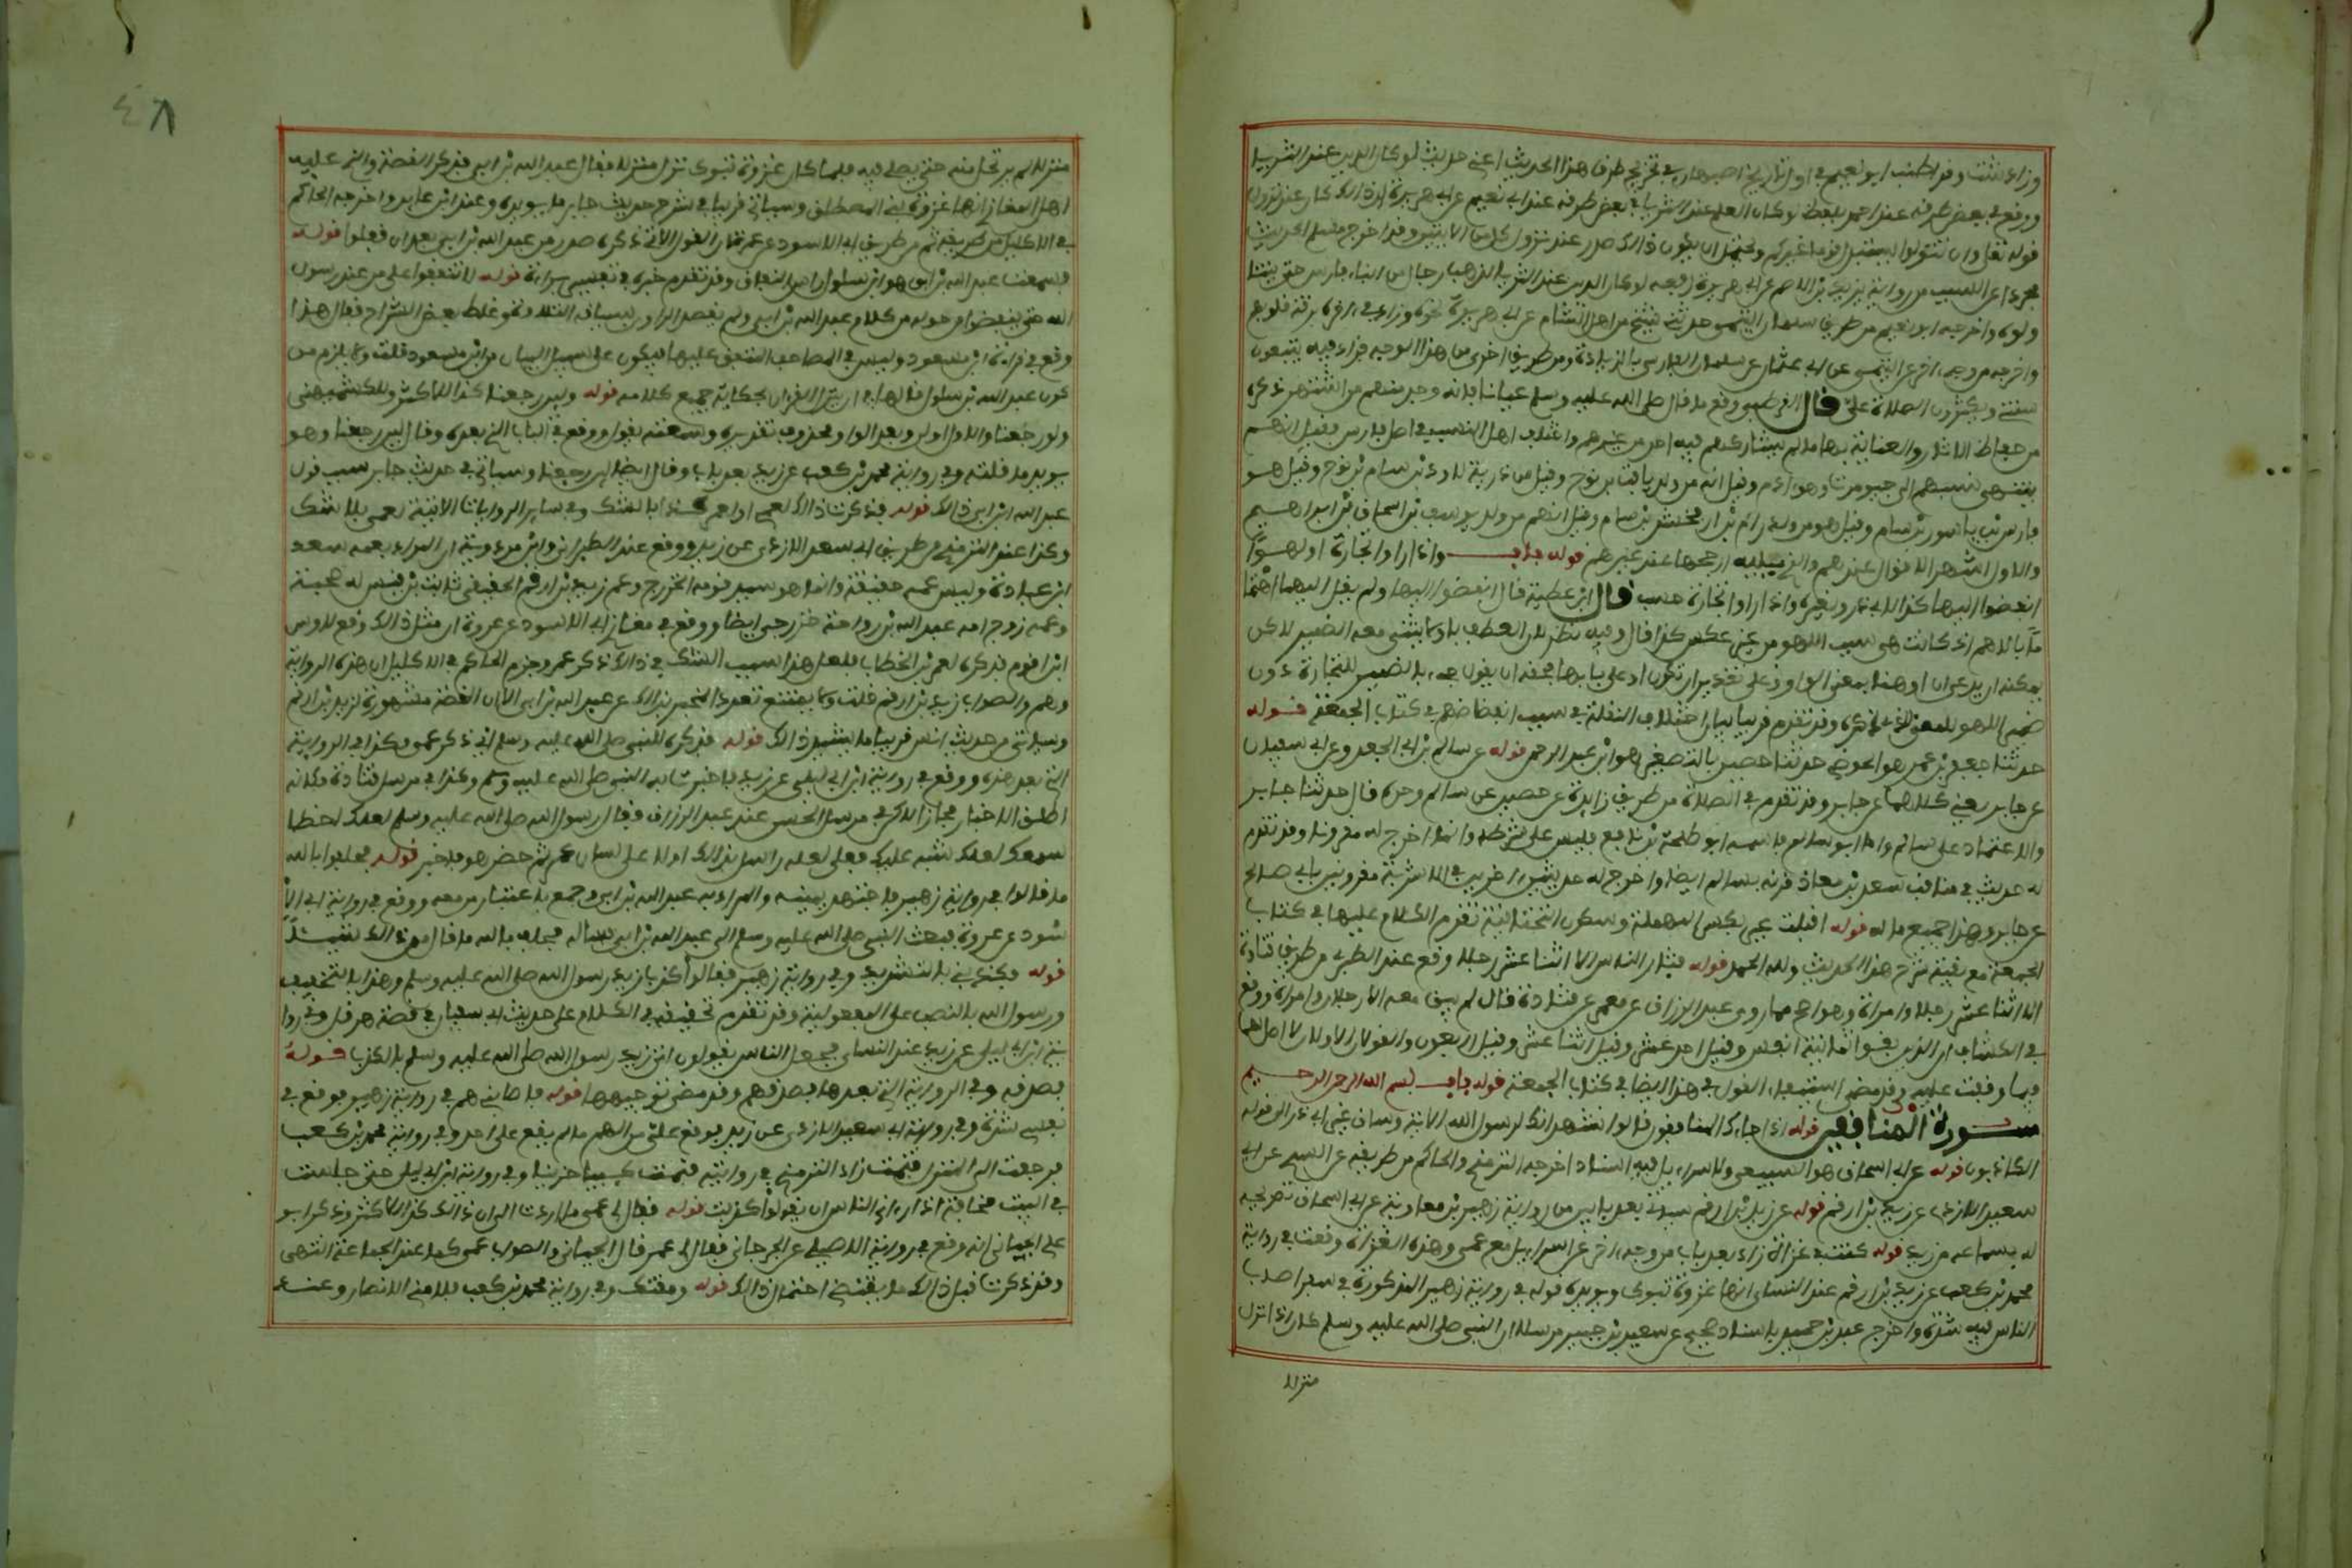 وزاد شتت وقد اطنب ابو نعيم في اول تاريخ اصبهان في تخريج طرق هذا الحديث اعني حديث لو كان الدين عند الثريا
ووقع في بعض طرقه عند احمد بلفظ لو كان العلم عند الثريا وفي بعض طرقه عند ابي نعيم عن ابي هريرة ان ذلك كان عند نزول
قوله تعلى وان تتولوا يستبدل قوما غيركم ويحتمل ان يكون ذلك صدر عند نزول كل من الايتين وقد اخرج مسلم الحديث
مجردا عن السبب من رواية يزيد بن الاصم عن ابي هريرة رفعه لو كان الدين عند الثريا لذهب رجال من ابناء فارس حتى يتنا
ولوه واخرجه ابو نعيم من طريق سليمان التيمي حدثني شيخ من اهل الشام عن ابي هريرة نحوه وزاد في اخره برقة قلوبهم
واخرجه من وجه اخر عن التيمي عن ابي عثمان عن سلمان الفارسي بالزيادة ومن طريق اخرى من هذا الوجه فزاد فيه يتبعون
سنتي ويكثرون الصلاة علي قال القرطبي وقع ما قال صلى الله عليه وسلم عيانا فانه وجد منهم من اشتهر ذكره
من حفاظ الاثار والعناية بها ما لم يشاركهم فيه احد من غيرهم واختلف اهل النسب في اصل فارس فقيل انهم
ينتهي نسبهم الى جيومرت وهو ادم وقيل انه من ولد يافث بن نوح وقيل من ذرية لاود بن سام بن نوح وقيل هو
فارس بن ياسور بن سام وقيل هو من ولد رام بن ارفخشد بن سام وقيل انهم من ولد يوسف بن اسحاق بن ابراهيم
والاول اشهر الاقوال عندهم والذي يليه ارجحها عند غيرهم قوله باب واذا راوا تجارة او لهوا
انفضوا اليها كذا لابي ذر ولغيره واذا راوا تجارة حسب قال ابن عطية قال انفضوا اليها ولم يقل اليهما اهتما
ما بالاهم اذ كانت هي سبب اللهو من غير عكس كذا قال وفيه نظر لان العطف باو لا يثنى معه الضمير لاكن
يمكنه ان يدعي ان او هنا بمعنى الواو وعلى تقدير ان تكون او على بابها فحقه ان يقول جيء بالضمير للتجارة دون
ضمير اللهو للمعنى الذي ذكره وقد تقدم قريبا بيان اختلاف النقلة في سبب انفضاضهم في كتاب الجمعة قوله
حدثنا حفص بن عمر هو الحوضي حدثنا حصين بالتصغير هو ابن عبد الرحمن قوله عن سالم بن ابي الجعد وعن ابي سفيان
عن جابر يعني كلاهما عن جابر وقد تقدم في الصلاة من طريق زايدة عن حصين عن سالم وحده قال حدثنا جابر
والاعتماد على سالم واما ابو سفيان فاسمه ابو طلحة بن نافع فليس على شرطه وانما اخرج له مقرونا وقد تقدم
له حديث في مناقب سعد بن معاذ قرنه بسالم ايضا واخرج له حديثين اخرين في الاشربة مقرونين بابي صالح
عن جابر وهذا جميع ما له قوله اقبلت عير بكسر المهملة وسكون التحتانية تقدم الكلام عليها في كتاب
الجمعة مع بقية شرح هذا الحديث ولله الحمد قوله فثار الناس الا اثنا عشر رجلا وقع عند الطبري من طريق قتادة
الا اثنا عشر رجلا وامراة وهو اصح مما روي عبد الرزاق عن معمر عن قتادة قال لم يبق معه الا رجلان وامراة ووقع
في الكشاف ان الذين بقوا ثمانية انفس وقيل احد عشر وقيل اثنا عشر وقيل اربعون والقولان الاولان لا اصل لهما
فيما وقفت عليه وقد مضى استيفاء القول في هذا ايضا في كتاب الجمعة قوله باب بسم الله الرحمن الرحيم
سورة المنافقين قوله اذا جاءك المنافقون قالوا نشهد انك لرسول الله الاية وساق غير ابي ذر الى قوله
الكاذبون قوله عن ابي اسحاق هو السبيعي ولاسراءيل فيه اسناد اخرجه الترمذي والحاكم من طريقه عن السدي عن ابي
سعيد الازدي عن زيد بن ارقم قوله عن زيد بن ارقم سياتي بعد بابين من رواية زهير بن معاوية عن ابي اسحاق تصريحه
له بسماعه من زيد قوله كنت في غزاة زاد بعد باب من وجه اخر عن اسراءيل مع عمي وهذه الغزاة وقعت في رواية
محمد بن كعب عن زيد بن ارقم عند النسائي انها غزوة تبوك ويويده قوله في رواية زهير المذكورة في سفر اصاب
الناس فيه شدة واخرج عبد بن حميد باسناد صحيح عن سعيد بن جبير مرسلا ان النبي صلى الله عليه وسلم كان اذا نزل
منزلا
٤٨
منزلا لم يرتحل منه حتى يصلي فيه فلما كان غزوة تبوك نزل منزلا فقال عبد الله بن ابي فذكر القصة والذي عليه
اهل المغازي انها غزوة بني المصطلق وسياتي قريبا في شرح حديث جابر ما يويده وعند ابن عايد واخرجه الحاكم
في الاكليل من طريقه ثم من طريق ابي الاسود عن عروة ان القول الاتي ذكره صدر من عبد الله بن ابي بعد ان قفلوا قوله
فسمعت عبد الله بن ابي هو ابن سلول راس النفاق وقد تقدم خبره في تفسير براءة قوله لا تنفقوا على من عند رسول
الله حتى ينفضوا من حوله هو كلام عبد الله بن ابي ولم يقصد الراوي بسياقه التلاوة وغلط بعض الشراح فقال هذا
وقع في قراءة ابن مسعود وليس في المصاحف المتفق عليها فيكون على سبيل البيان من ابن مسعود قلت ولا يلزم من
كون عبد الله بن سلول قالها ان ينزل القرءان بحكاية جميع كلامه قوله ولين رجعنا كذا للاكثر وللكشميهني
ولو رجعنا والاول اولى وبعد الواو محذوف تقديره وسمعته يقول ووقع في الباب الذي بعده وقال لين رجعنا وهو
يويد ما قلته وفي رواية محمد بن كعب عن زيد بعد باب وقال ايضا لين رجعنا وسياتي في حديث جابر سبب قول
عبد الله ابن ابي ذلك قوله فذكرت ذلك لعمي او لعمر كذا بالشك وفي سائر الروايات الاتية لعمي بلا شك
وكذا عند الترمذي من طريق ابي سعد الازدي عن زيد ووقع عند الطبراني وابن مردويه ان المراد بعمه سعد
ابن عبادة وليس عمه حقيقة وانما هو سيد قومه الخزرج وعم زيد بن ارقم الحقيقي ثابت بن قيس له صحبة
وعمه زوج امه عبد الله بن رواحة خزرجي ايضا ووقع في مغازي ابي الاسود عن عروة ان مثل ذلك وقع لاوس
ابن اقرم فذكره لعمر بن الخطاب فلعل هذا سبب الشك في ذلك ذكر عمر وجزم الحاكم في الاكليل ان هذه الرواية
وهم والصواب زيد بن ارقم قلت ولا يمتنع تعدد المخبر بذلك عن عبد الله بن ابي الا ان القصة مشهورة لزيد بن ارقم
وسياتي من حديث انس قريبا ما يشهد لذلك قوله فذكره للنبي صلى الله عليه وسلم اي ذكر عمي وكذا في الرواية
التي بعد هذه ووقع في رواية ابن ابي ليلى عن زيد فاخبرت به النبي صلى الله عليه وسلم وكذا في مرسل قتادة فكانه
اطلق الاخبار مجازا لاكن في مرسل الحسن عند عبد الرزاق فقال رسول الله صلى الله عليه وسلم لعلك اخطا
سمعك لعلك شبه عليك فعلى لعله راسل بذلك اولا على لسان عمه ثم حضر هو فاخبر قوله فحلفوا بالله
ما قالوا في رواية زهير فاجتهد يمينه والمراد به عبد الله بن ابي وجمع باعتبار من معه ووقع في رواية ابي الا
سود عن عروة فبعث النبي صلى الله عليه وسلم الى عبد الله بن ابي فساله فحلف بالله ما قال من ذلك شيئا
قوله فكذبني بالتشديد وفي رواية زهير فقالوا كذب زيد رسول الله صلى الله عليه وسلم وهذا بالتخفيف
ورسول الله بالنصب على المفعولية وقد تقدم تحقيقه في الكلام على حديث ابي سفيان في قصة هرقل وفي روا
ية ابن ابي ليلى عن زيد عند النسائي فجعل الناس يقولون اتى زيد رسول الله صلى الله عليه وسلم بالكذب قوله
وصدقه وفي الرواية التي بعدها وصدقهم وقد مضى توجيهها قوله فاصابني هم في رواية زهير فوقع في
نفسي شدة وفي رواية ابي سعيد الازدي عن زيد فوقع علي من الهم ما لم يقع على احد وفي رواية محمد بن كعب
فرجعت الى المنزل فنمت زاد الترمذي في روايته فنمت كئيبا حزينا وفي رواية ابن ابي ليلى حتى جلست
في البيت مخافة اذا رءاني الناس ان يقولوا كذبت قوله فقال لي عمي ما اردت الى ان ذلك كذا للاكثر وذكر ابو
علي الجياني انه وقع في رواية الاصيلي عن الجرجاني فقال لي عمر قال الجياني والصواب عمي كما عند الجماعة انتهى
وقد ذكرت قبل ذلك ما يقتضي احتمال ذلك قوله ومقتك وفي رواية محمد بن كعب فلامني الانصار وعند